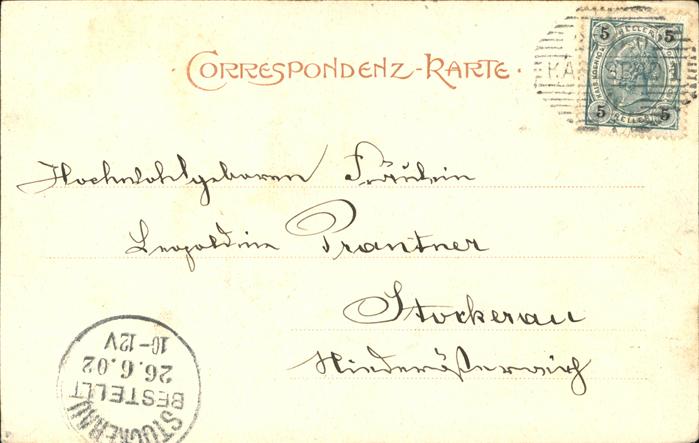 CORRESPONDENZ-KARTE.
5 HELLER 5
KARLSBAD
5 HELLER 5
Hochwohlgeboren Fräulein
Leopoldine Prantner
Stockerau
Niederösterreich
STOCKERAU
BESTELLT
26.6.02
10-12V